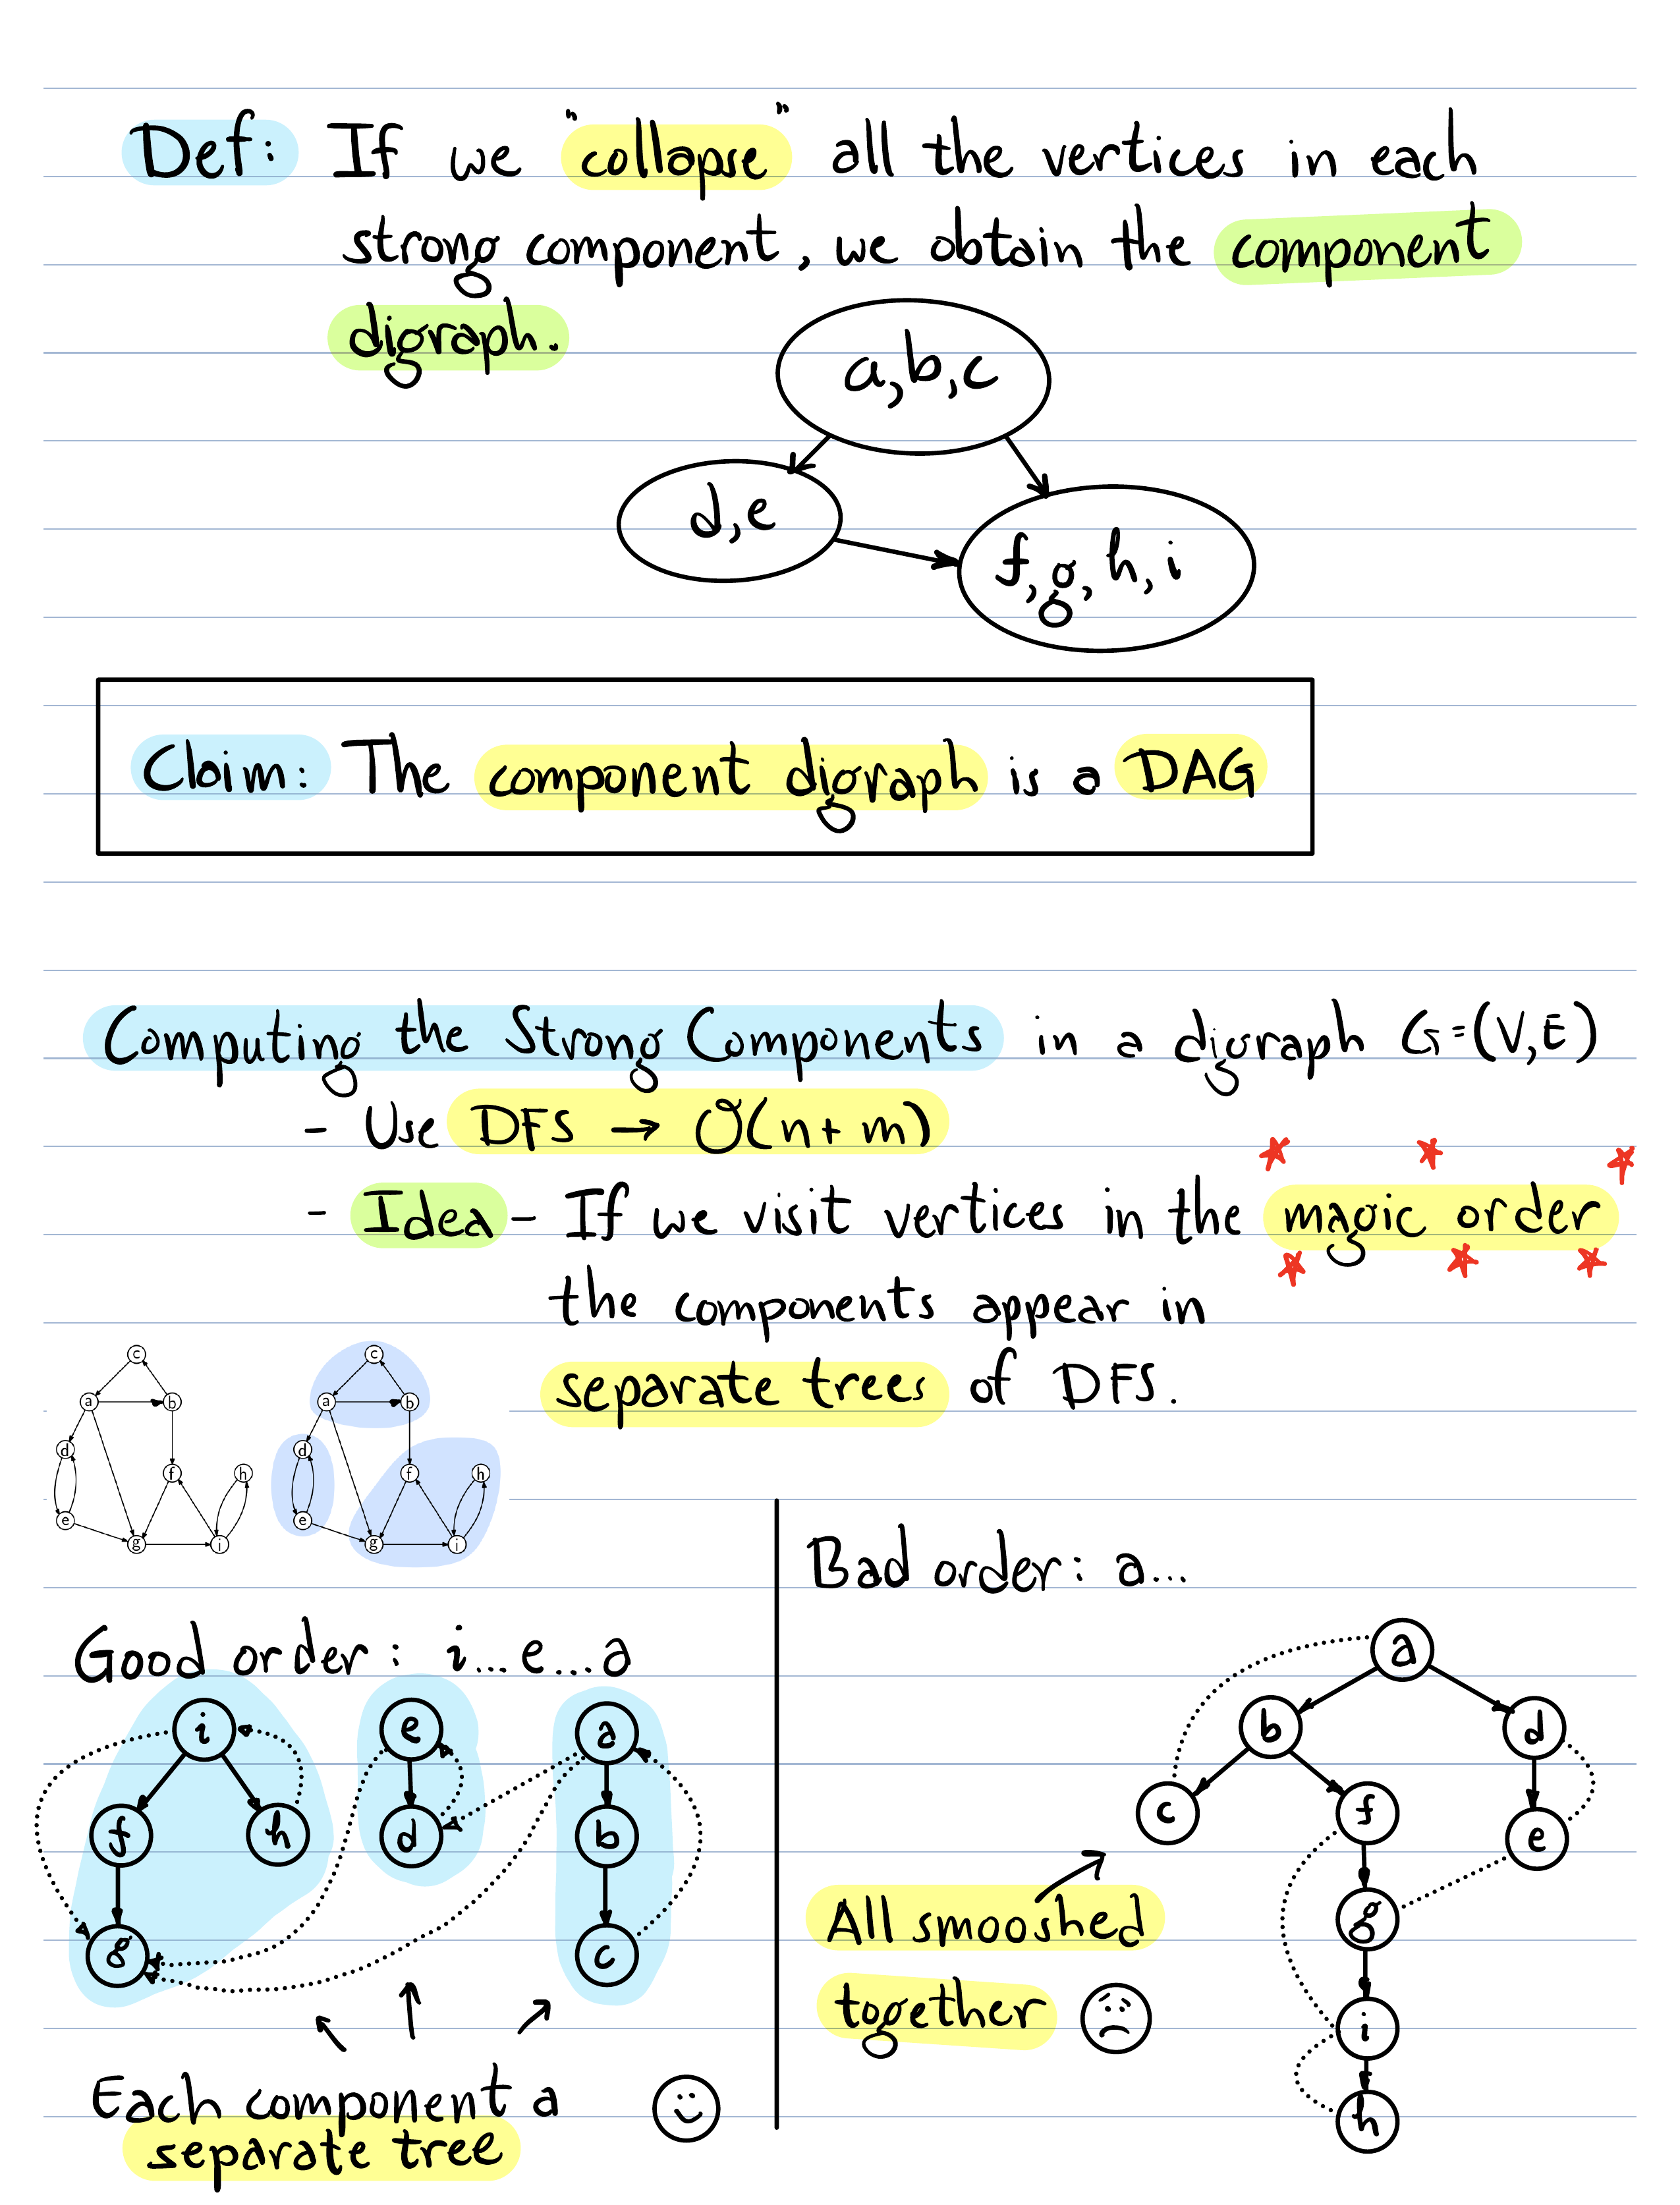 Def: If we "collapse" all the vertices in each
strong component, we obtain the component
digraph.
a,b,c
d,e
f,g,h,i
Claim: The component digraph is a DAG
Computing the Strong Components in a digraph G=(V,E)
- Use DFS → O(n+m)
- Idea - If we visit vertices in the magic order
the components appear in
separate trees of DFS.
c
a b
d
f h
e
g i
c
a b
d
f h
e
g i
Good order: i...e...a
i e a
f h d b
g c
Each component a
separate tree
Bad order: a...
a
b d
c f e
g
i
h
All smooshed
together